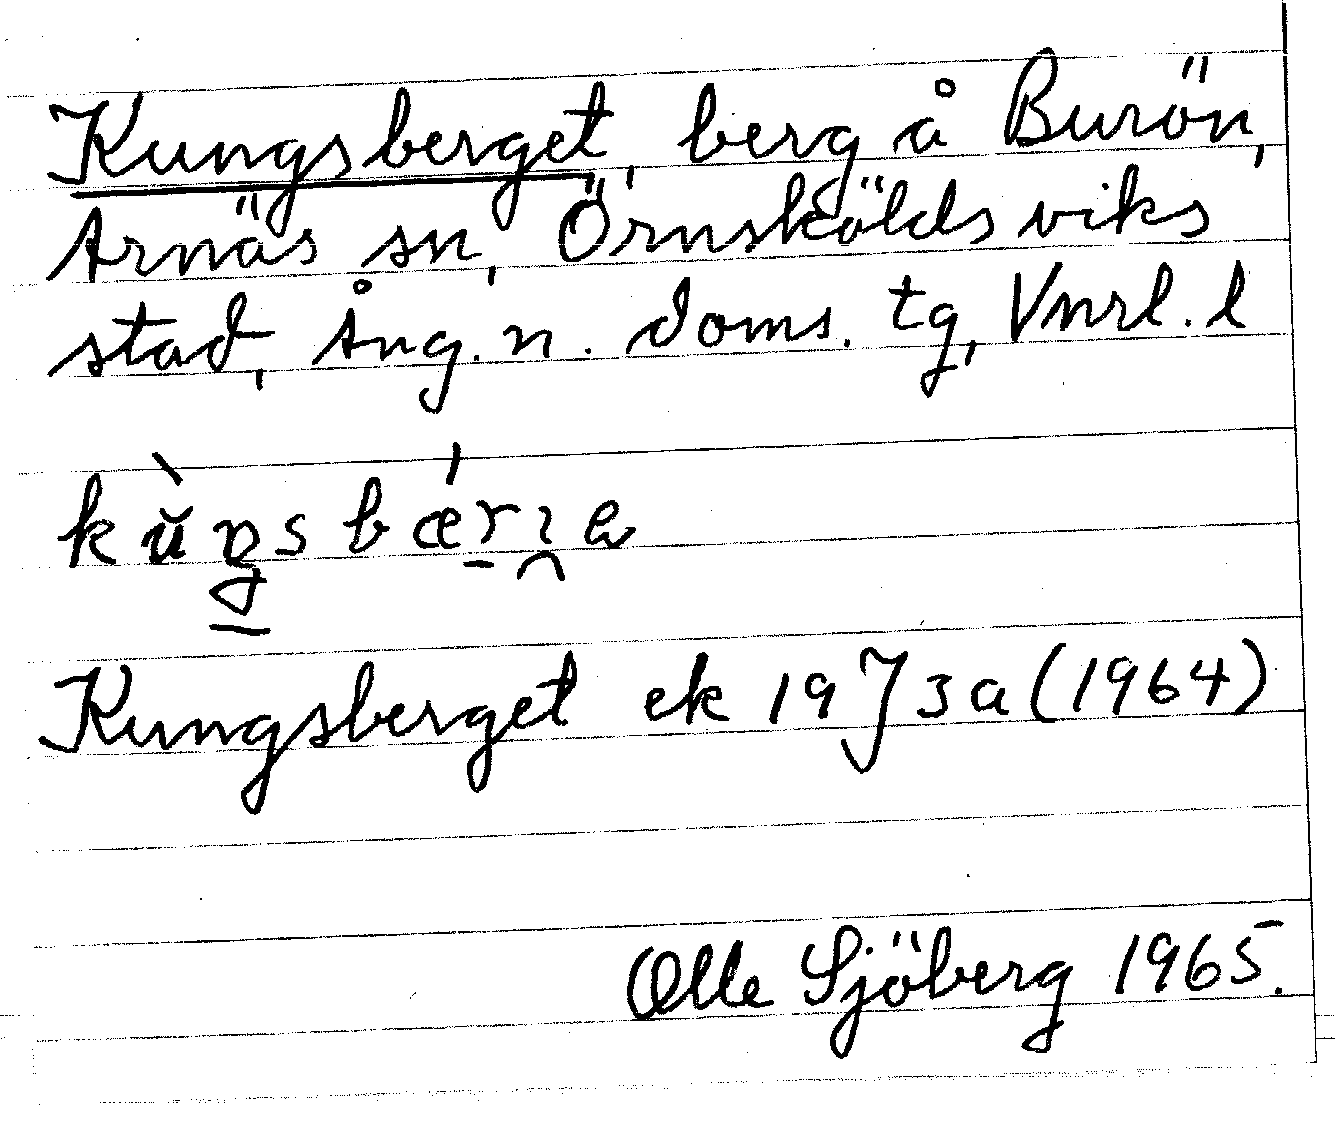 Kungsberget, berg å Burön,
Arnäs sn, Örnsköldsviks
stad, Ång. n. doms. tg, Vnrl. l
Kungsberget ek 19 J 3 a (1964)
Olle Sjöberg 1965.